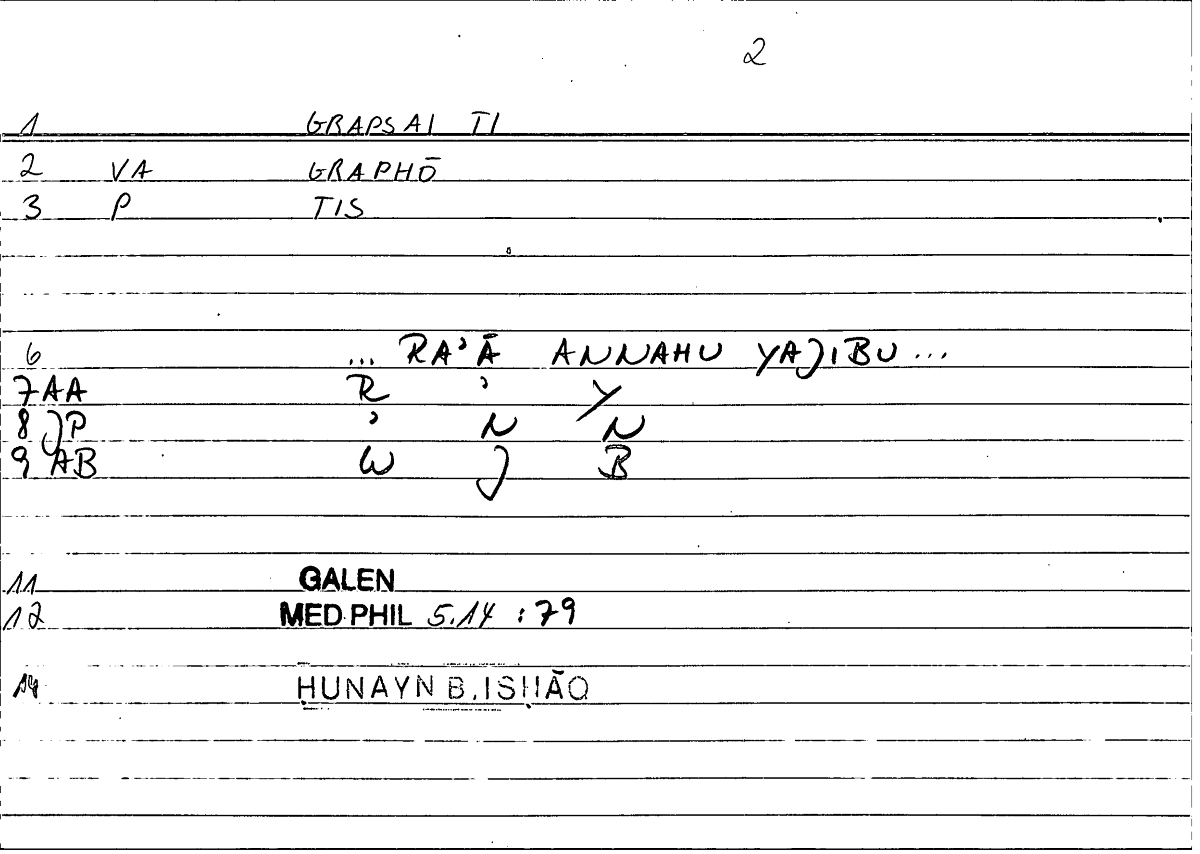 2
1 GRAPSAI TI
2 VA GRAPHŌ
3 P TIS
6 ... RA'Ā ANNAHU YAJIBU ...
7 AA R ' Y
8 JP ' N N
9 AB W J B
11 GALEN
12 MED.PHIL 5.14 : 79
14 ḤUNAYN B. ISḤĀQ